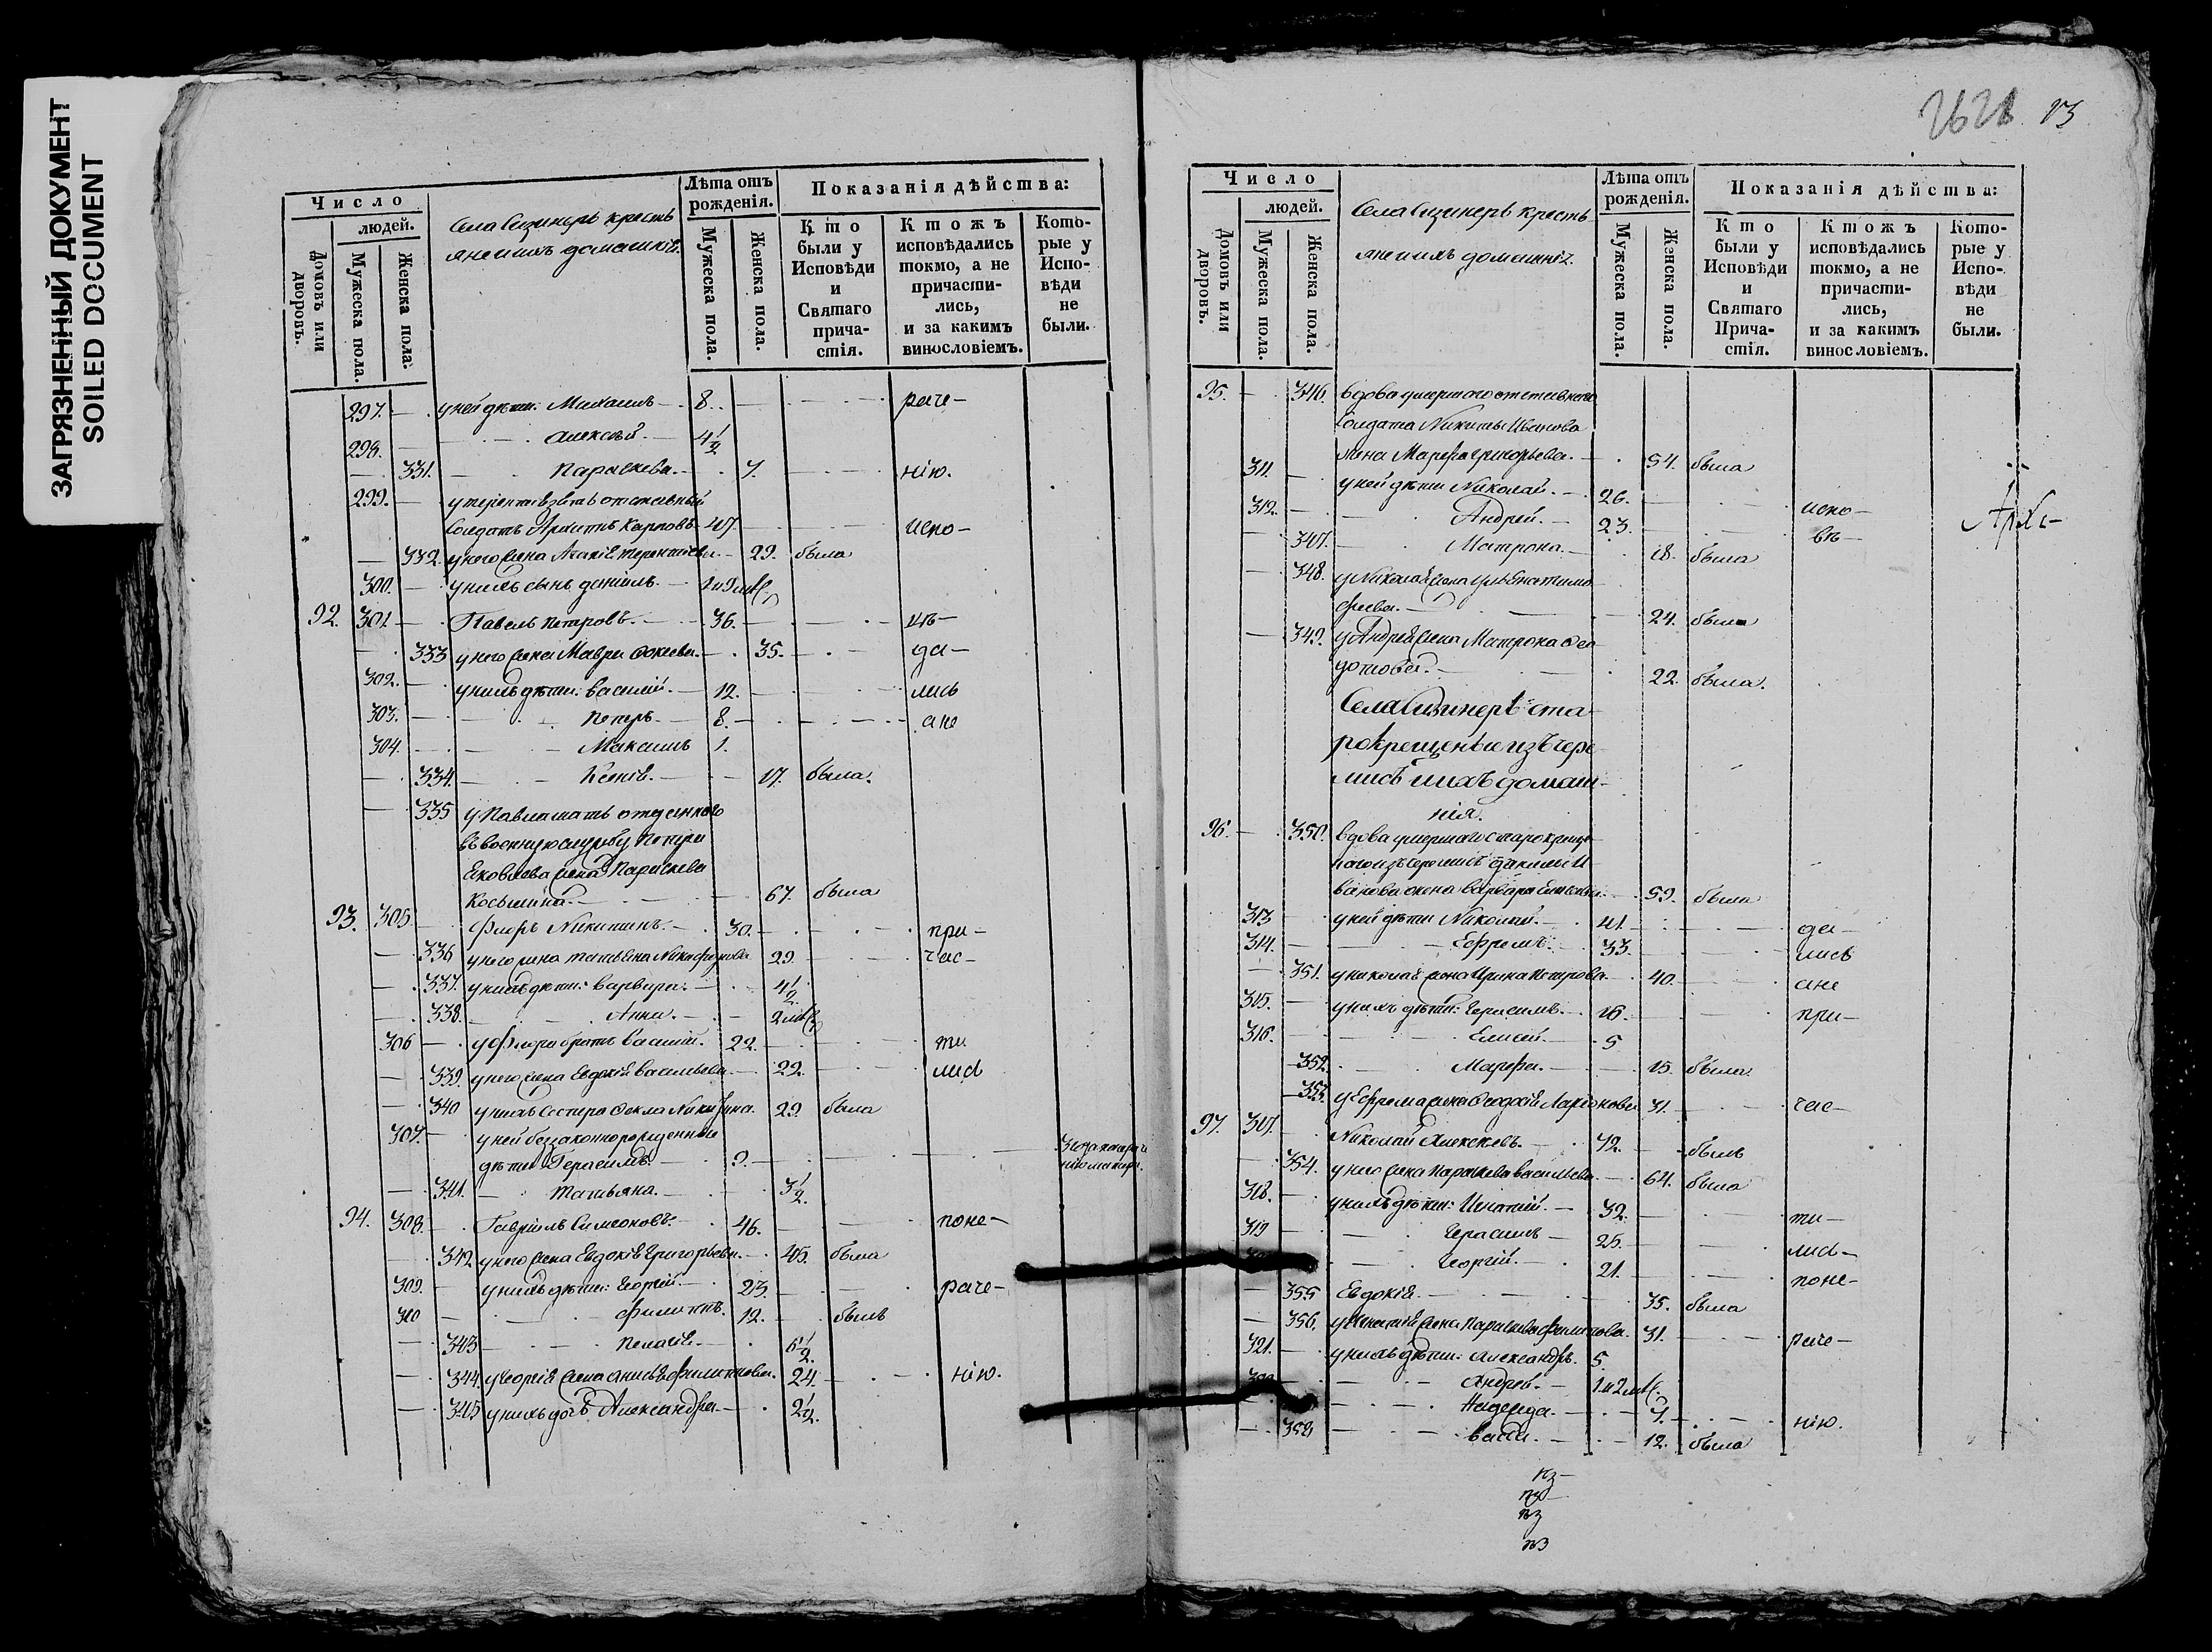 ЗАГРЯЗНЕННЫЙ ДОКУМЕНТ
SOILED DOCUMENT
Число
людей.
Домовъ или дворовъ.
Мужеска пола.
Женска пола.
Села крестьянѣ и ихъ домашніе.
Лѣта отъ рожденія.
Мужеска пола.
Женска пола.
Показанія дѣйства:
Кто были у Исповѣди и Святаго причастія.
Ктожъ исповѣдались токмо, а не причастились, и за какимъ винословіемъ.
Которые у Исповѣди не были.
297. у ней дѣти: Михаилъ 8. раче-
298. Алексѣй 4 1/2
331. Параскева 7. нію.
299. отставный
солдатъ Карповъ 47. испо-
332. у него жена 29. была
300. у нихъ сынъ Даніилъ
92. 301. Павелъ Петровъ 36. вѣ-
333 у него жена Мавра 35. да-
302. у нихъ дѣти: Василій 12. лись
303. Петръ 8. а не
304. Максимъ 1.
334. 17. была
335 у Павла мать отданнаго
въ военную службу Петра
Яковлева жена Параскева
Косьмина 67. была
93. 305. Флоръ Никитинъ 30. при-
336 у него жена Татьяна Никифорова 29. час-
337. у нихъ дѣти: Варвара 4 1/2
338. Анна
306 у Флора братъ Василій 22. ти
339. у него жена Евдокія Васильева 22. лись
340 у нихъ сестра Ѳекла Никитина 29 была
307. у ней беззаконнорожденные
дѣти Герасимъ 9.
341. Татьяна 3 1/2
94. 308. Гавріилъ Симеоновъ 46. поне-
342 у него жена Евдокія Григорьева 45. была
309. у нихъ дѣти: Георгій 23. раче-
310 Филиппъ 12. былъ
343 Пелагія 6 1/2
344. у Георгія жена Анисья Филиппова 24. нію.
345 у нихъ дочь Александра 2 1/2
2621 93
Число
людей.
Домовъ или дворовъ.
Мужеска пола.
Женска пола.
Села крестьянѣ и ихъ домашніе.
Лѣта отъ рожденія.
Мужеска пола.
Женска пола.
Показанія дѣйства:
Кто были у Исповѣди и Святаго Причастія.
Ктожъ исповѣдались токмо, а не причастились, и за какимъ винословіемъ.
Которые у Исповѣди не были.
95. 346. вдова умершаго отставнаго
солдата Никиты Иванова
жена Марфа Григорьева 54. была
311. у ней дѣти Николай 26. испо-
312. Андрей 23. вѣ-
347. Матрона 18. была
348. у Николая жена Ульяна Тимо
фѣева 24. была
349. у Андрея жена Матрона Ѳео
дотова 22. была.
Села ста
рокрещеные изъ чере
мисъ и ихъ домаш-
нія.
96. 350. вдова умершаго старокреще
наго изъ черемисъ Іакима И
ванова жена Варвара 59. была
313 у ней дѣти Николай 41. да-
314. Ефремъ 33. лись
351. у Николая жена Ирина Петрова 40. а не
315. у нихъ дѣти: Герасимъ 16. при-
316. Елисей 5
352. Марфа 15. была
353. у Ефрема жена Евдокія 31. час-
97. 317. Николай Алексѣевъ 72. былъ
354. у него жена Параскева Васильева 64. была
318. у нихъ дѣти: Игнатій 32. ти-
319 Герасимъ 25. лись-
Георгій 21. поне-
355 Евдокія 35. была
356. у Игнатія жена Параскева Филиппова 31. раче-
321. у нихъ дѣти: Александръ 5.
Андрей
Надежда 7. нію.
358 Васса 12. была